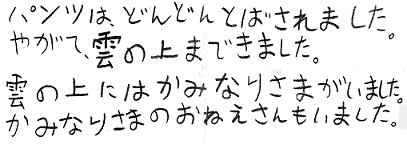 パンツは、どんどんとばされました。
やがて、雲の上まできました。
雲の上にはかみなりさまがいました。
かみなりさまのおねえさんもいました。